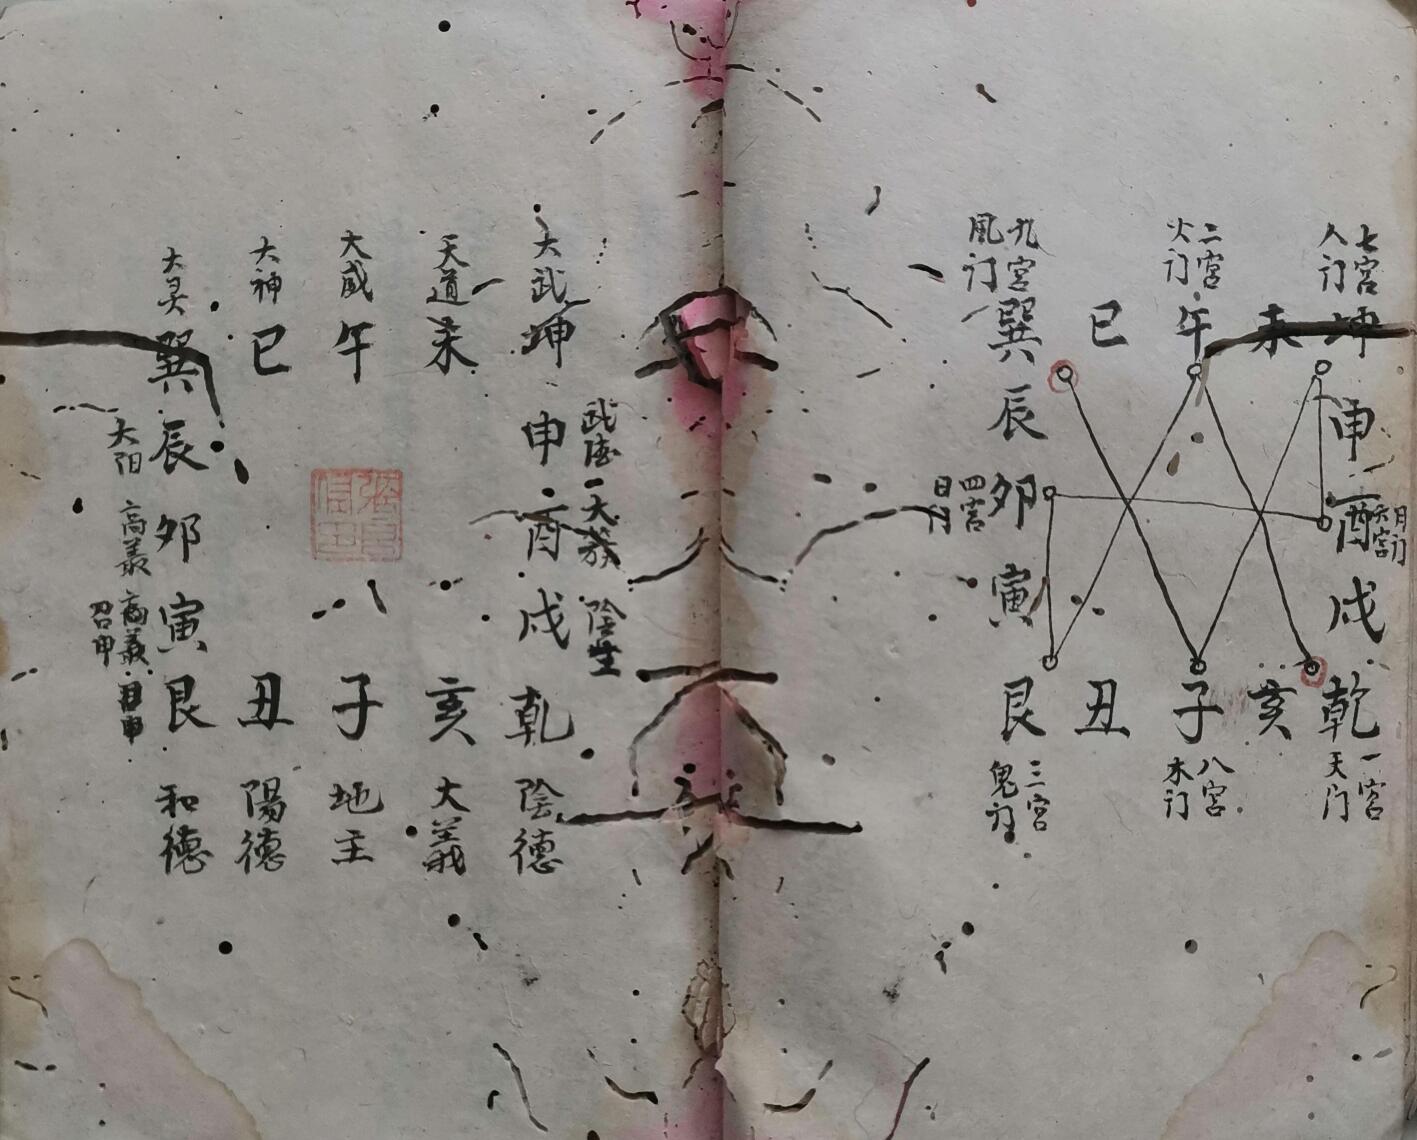 七宮
人门
二宮
火门
九宮
風门
坤
未
午
巳
巽
申
辰
酉
月门
六宮
卯
四宮
日门
戌
寅
乾
亥
子
丑
艮
一宮
天门
八宮
木门
三宮
鬼门
大武
天道
大威
大神
大炅
坤
未
午
巳
巽
武德
申
辰
大阳
大蔟
酉
卯
高義
陰生
戌
寅
高義
召申
乾
亥
子
丑
艮
陰德
大義
地主
陽德
和德